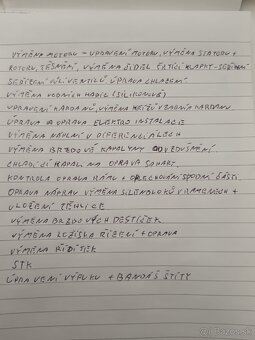 VÝMĚNA MOTORU - UPRAVENÍ MOTORU, VÝMĚNA STATORU +
ROTORU, TĚSNĚNÍ, VÝMĚNA ČIDEL ŠKRTÍCÍ KLAPKY - SEŘÍZENÍ
SEŘÍZENÍ VŮLÍ VENTILŮ ÚPRAVA CHLAZENÍ
VÝMĚNA VODNÍCH HADIC (SILIKONOVÉ)
UPRAVENÍ KARDANŮ, VÝMĚNA KŘÍŽŮ VZADNÍM KARDANU
ÚPRAVA A OPRAVA ELEKTRO INSTALACE
VÝMĚNA NÁPLNÍ V DIFERENCIÁLECH
VÝMĚNA BRZDOVÉ KAPALINY ODVZDUŠNĚNÍ
CHLADÍCÍ KAPAL NA OPRAVA
KONTROLA OPRAVA RÁMU + SPODNÍ ČÁSTI
OPRAVA NÁPRAV VÝMĚNA SILENBLOKŮ V RAMENECH +
ULOŽENÍ TĚHLICE
VÝMĚNA BRZDOVÝCH DESTIČEK
VÝMĚNA LOŽISKA ŘÍZENÍ + OPRAVA
VÝMĚNA ŘÍDÍTEK
STK
ÚPRAVENÍ VÝFUKU + BANDÁŠ ŠTÍTY
Bazar.sk